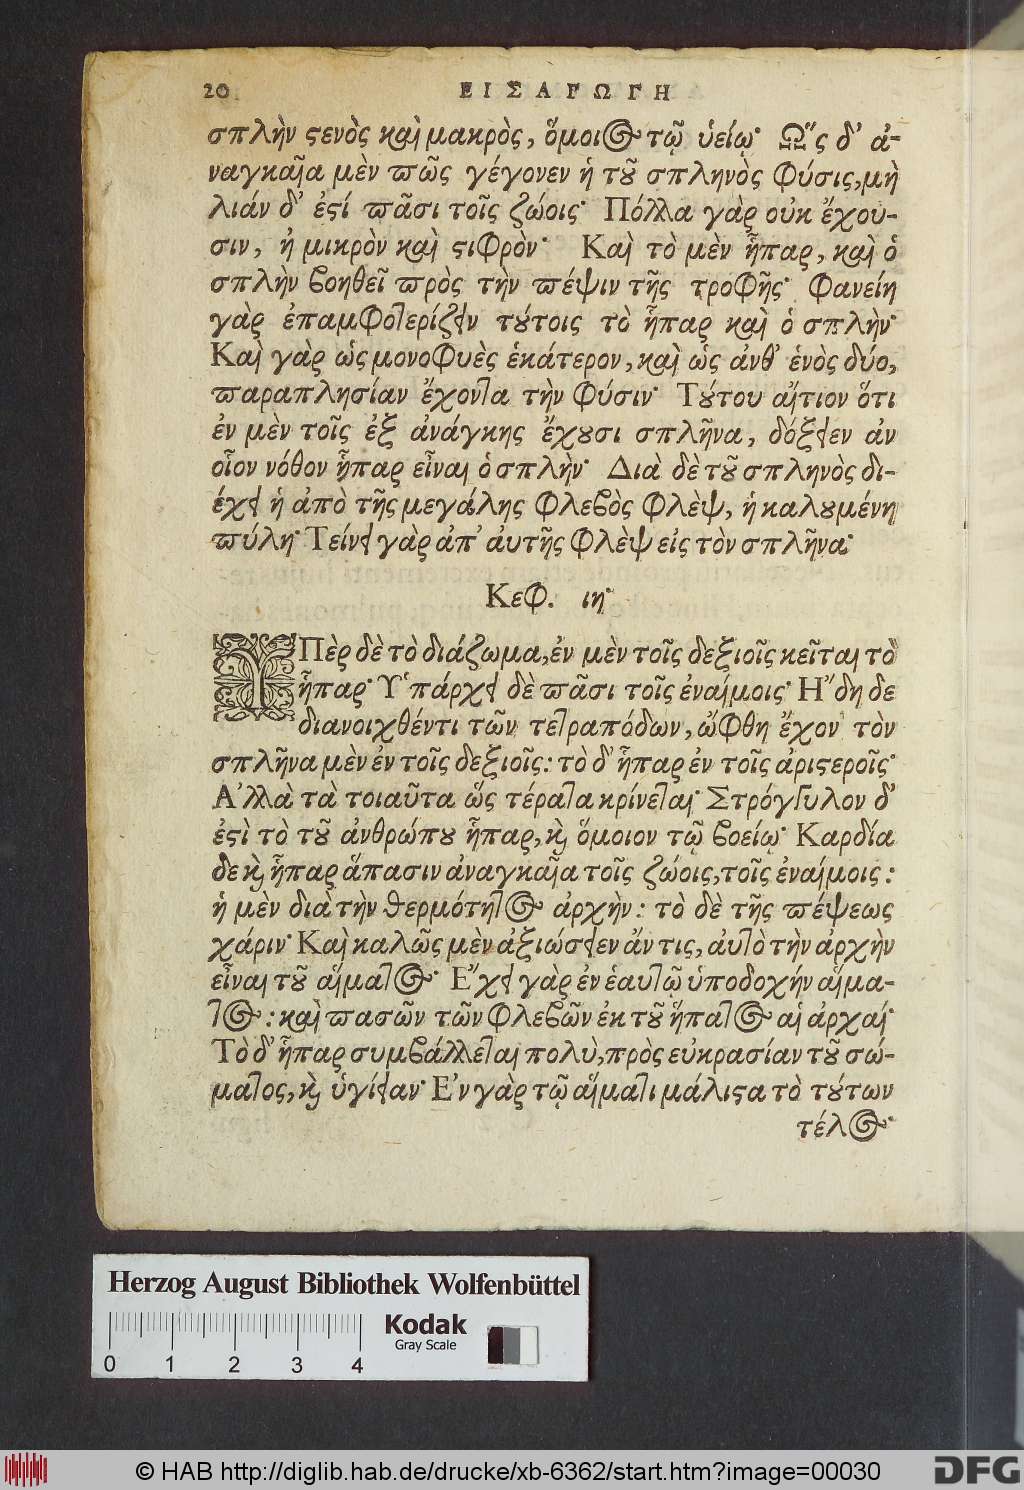 20 ΕΙΣΑΓΩΓΗ
σπλὴν ϛενὸς καὶ μακρὸς, ὅμοιος τῷ ὑείῳ· Ὡς δ’ ἀ-
ναγκαῖα μὲν πῶς γέγονεν ἡ τοῦ σπληνὸς φύσις, μὴ
λιάν δ’ ἐϛί πᾶσι τοῖς ζώοις· Πόλλα γὰρ οὐκ ἔχου-
σιν, ἠ μικρὸν καὶ ϛιφρὸν· Καὶ τὸ μὲν ἧπαρ, καὶ ὁ
σπλὴν βοηθεῖ πρὸς τὴν πέψιν τῆς τροφῆς· Φανείη
γὰρ ἐπαμφοτερίζειν τούτοις τὸ ἧπαρ καὶ ὁ σπλὴν·
Καὶ γὰρ ὡς μονοφυὲς ἑκάτερον, καὶ ὡς ἀνθ’ ἑνὸς δύο,
παραπλησίαν ἔχοντα τὴν φύσιν· Τούτου αἴτιον ὅτι
ἐν μὲν τοῖς ἐξ ἀνάγκης ἔχουσι σπλῆνα, δόξειεν ἀν
οἷον νόθον ἧπαρ εἶναι ὁ σπλὴν· Διὰ δὲ τοῦ σπληνὸς δι-
έχει ἡ ἀπὸ τῆς μεγάλης φλεβὸς φλὲψ, ἡ καλουμένη
πύλη· Τείνει γὰρ ἀπ’ ἀυτῆς φλὲψ εἰς τὸν σπλῆνα·
Κεφ. ιη·
ΥΠὲρ δὲ τὸ διάζωμα, ἐν μὲν τοῖς δεξιοῖς κεῖται τὸ
ἧπαρ· Ὑπάρχει δὲ πᾶσι τοῖς ἐναίμοις· Ἤδη δε
διανοιχθέντι τῶν τετραπόδων, ὤφθη ἔχον τὸν
σπλῆνα μὲν ἐν τοῖς δεξιοῖς: τὸ δ’ ἧπαρ ἐν τοῖς ἀριϛεροῖς·
Ἀλλὰ τὰ τοιαῦτα ὥς τέρατα κρίνεται· Στρόγγυλον δ’
ἐϛὶ τὸ τοῦ ἀνθρώπου ἧπαρ, ϗ ὅμοιον τῷ βοείῳ· Καρδία
δε ϗ ἧπαρ ἅπασιν ἀναγκαῖα τοῖς ζώοις, τοῖς ἐναίμοις:
ἡ μὲν διὰ τὴν θερμότητος ἀρχὴν: τὸ δὲ τῆς πέψεως
χάριν· Καὶ καλῶς μὲν ἀξιώσειεν ἄν τις, ἀυτὸ τὴν ἀρχὴν
εἶναι τοῦ αἵματος· Ἔχει γὰρ ἐν ἑαυτῷ ὑποδοχήν αἵμα-
τος: καὶ πασῶν τῶν φλεβῶν ἐκ τοῦ ἥπατος αἱ ἀρχαί·
Τὸ δ’ ἧπαρ συμβάλλεται πολὺ, πρὸς εὐκρασίαν τοῦ σώ-
ματος, ϗ ὑγίειαν· Ἐν γὰρ τῷ αἵματι μάλιϛα τὸ τούτων
τέλος·
Herzog August Bibliothek Wolfenbüttel
Kodak
Gray Scale
0 1 2 3 4
© HAB http://diglib.hab.de/drucke/xb-6362/start.htm?image=00030
DFG